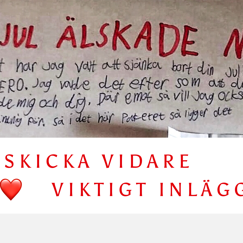 JUL ÄLSKADE
har jag valt att skänka bort din jul
ERO. Jag valde det efter som att d
de mig och dig. Där emot så vill jag ocks
för. så i det här Paketet så ligger det
SKICKA VIDARE
❤️ VIKTIGT INLÄGG